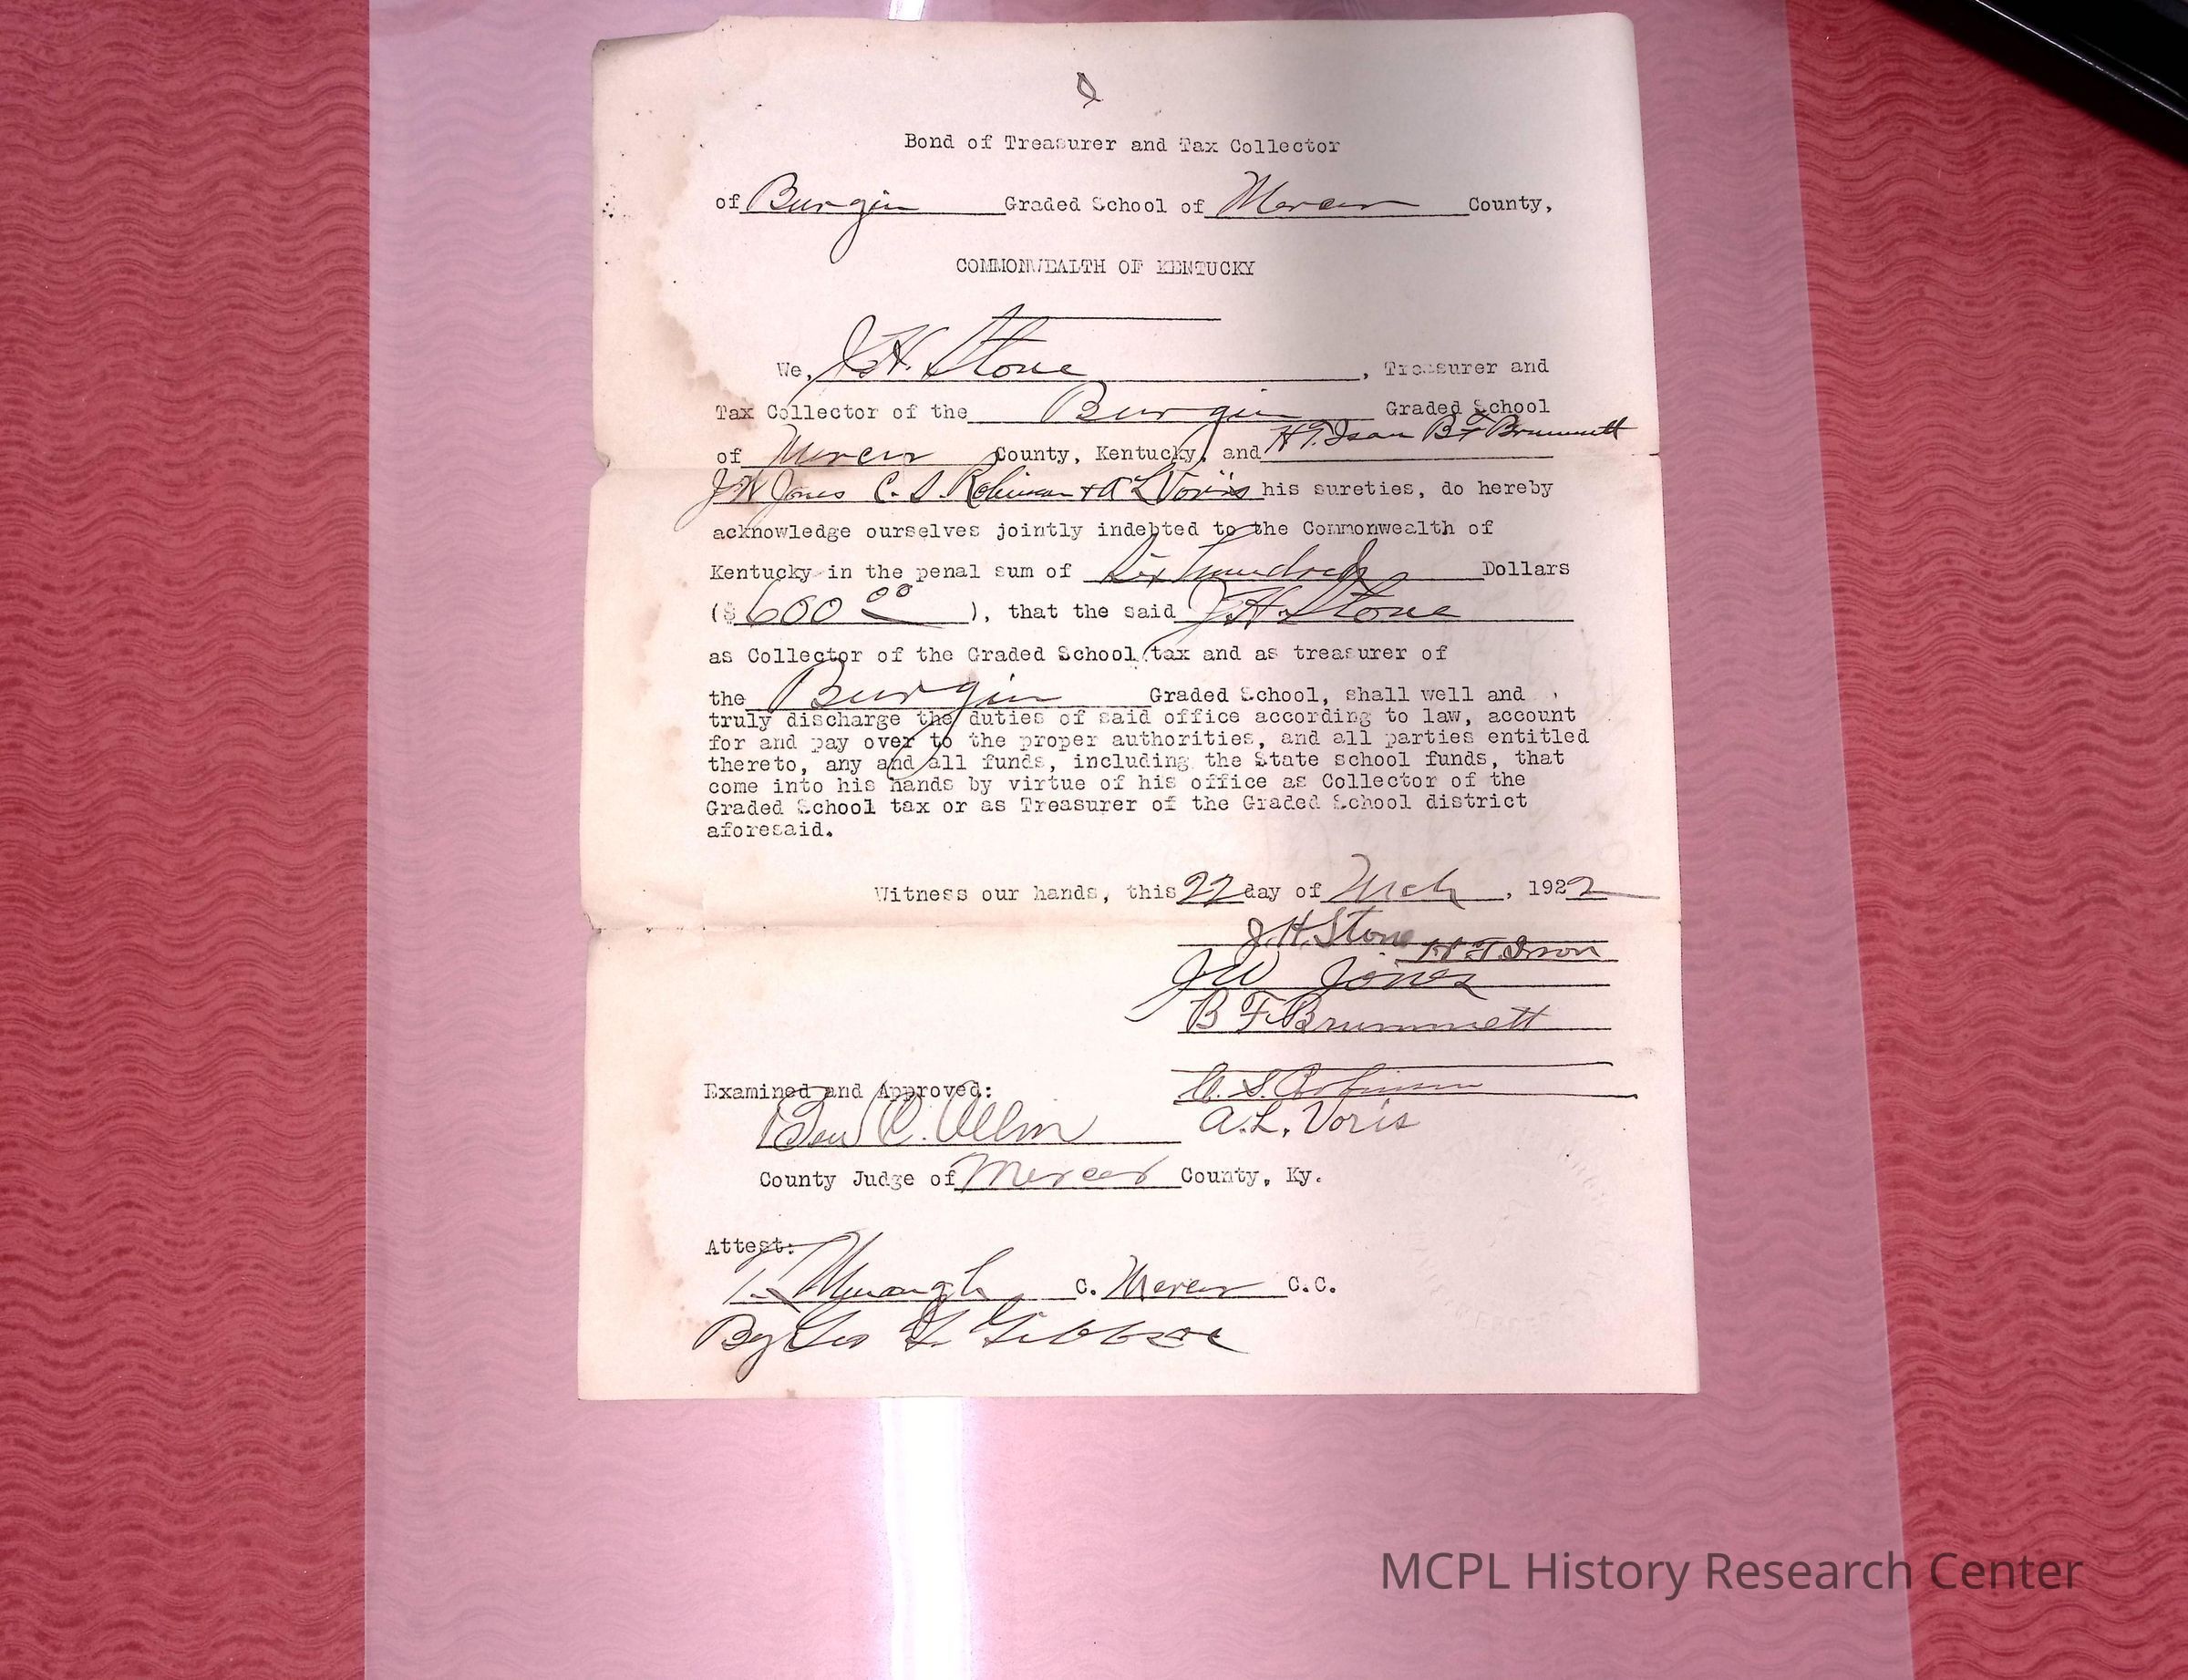 Bond of Treasurer and Tax Collector
of Burgin Graded School of Mercer County,
COMMONWEALTH OF KENTUCKY
We, J.H. Stone, Treasurer and
Tax Collector of the Burgin Graded School
of Mercer County, Kentucky, and H.T. Ison B F Brummett
J W Jones C. S. Robinson + A L Voris his sureties, do hereby
acknowledge ourselves jointly indebted to the Commonwealth of
Kentucky in the penal sum of Six hundred Dollars
($600 00), that the said J.H. Stone
as Collector of the Graded School tax and as treasurer of
the Burgin Graded School, shall well and
truly discharge the duties of said office according to law, account
for and pay over to the proper authorities, and all parties entitled
thereto, any and all funds, including the State school funds, that
come into his hands by virtue of his office as Collector of the
Graded School tax or as Treasurer of the Graded School district
aforesaid.
Witness our hands, this 22 day of Mch, 1922
J.H. Stone H.T. Ison
J W Jones
B F Brummett
Examined and Approved: C. S. Robinson
Ben C. Allin A.L. Voris
County Judge of Mercer County, Ky.
Attest:
C. Mercer C.C.
By Geo
MCPL History Research Center